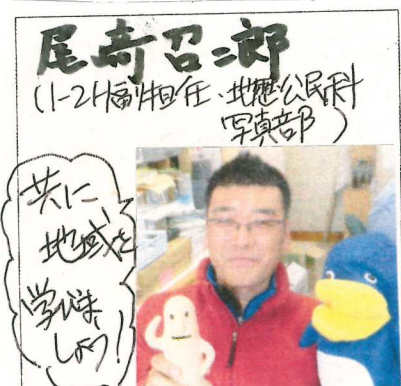 尾崎召二郎
(1-2H副担任・地歴公民科
写真部)
共に
地域を
学びま
しょう!